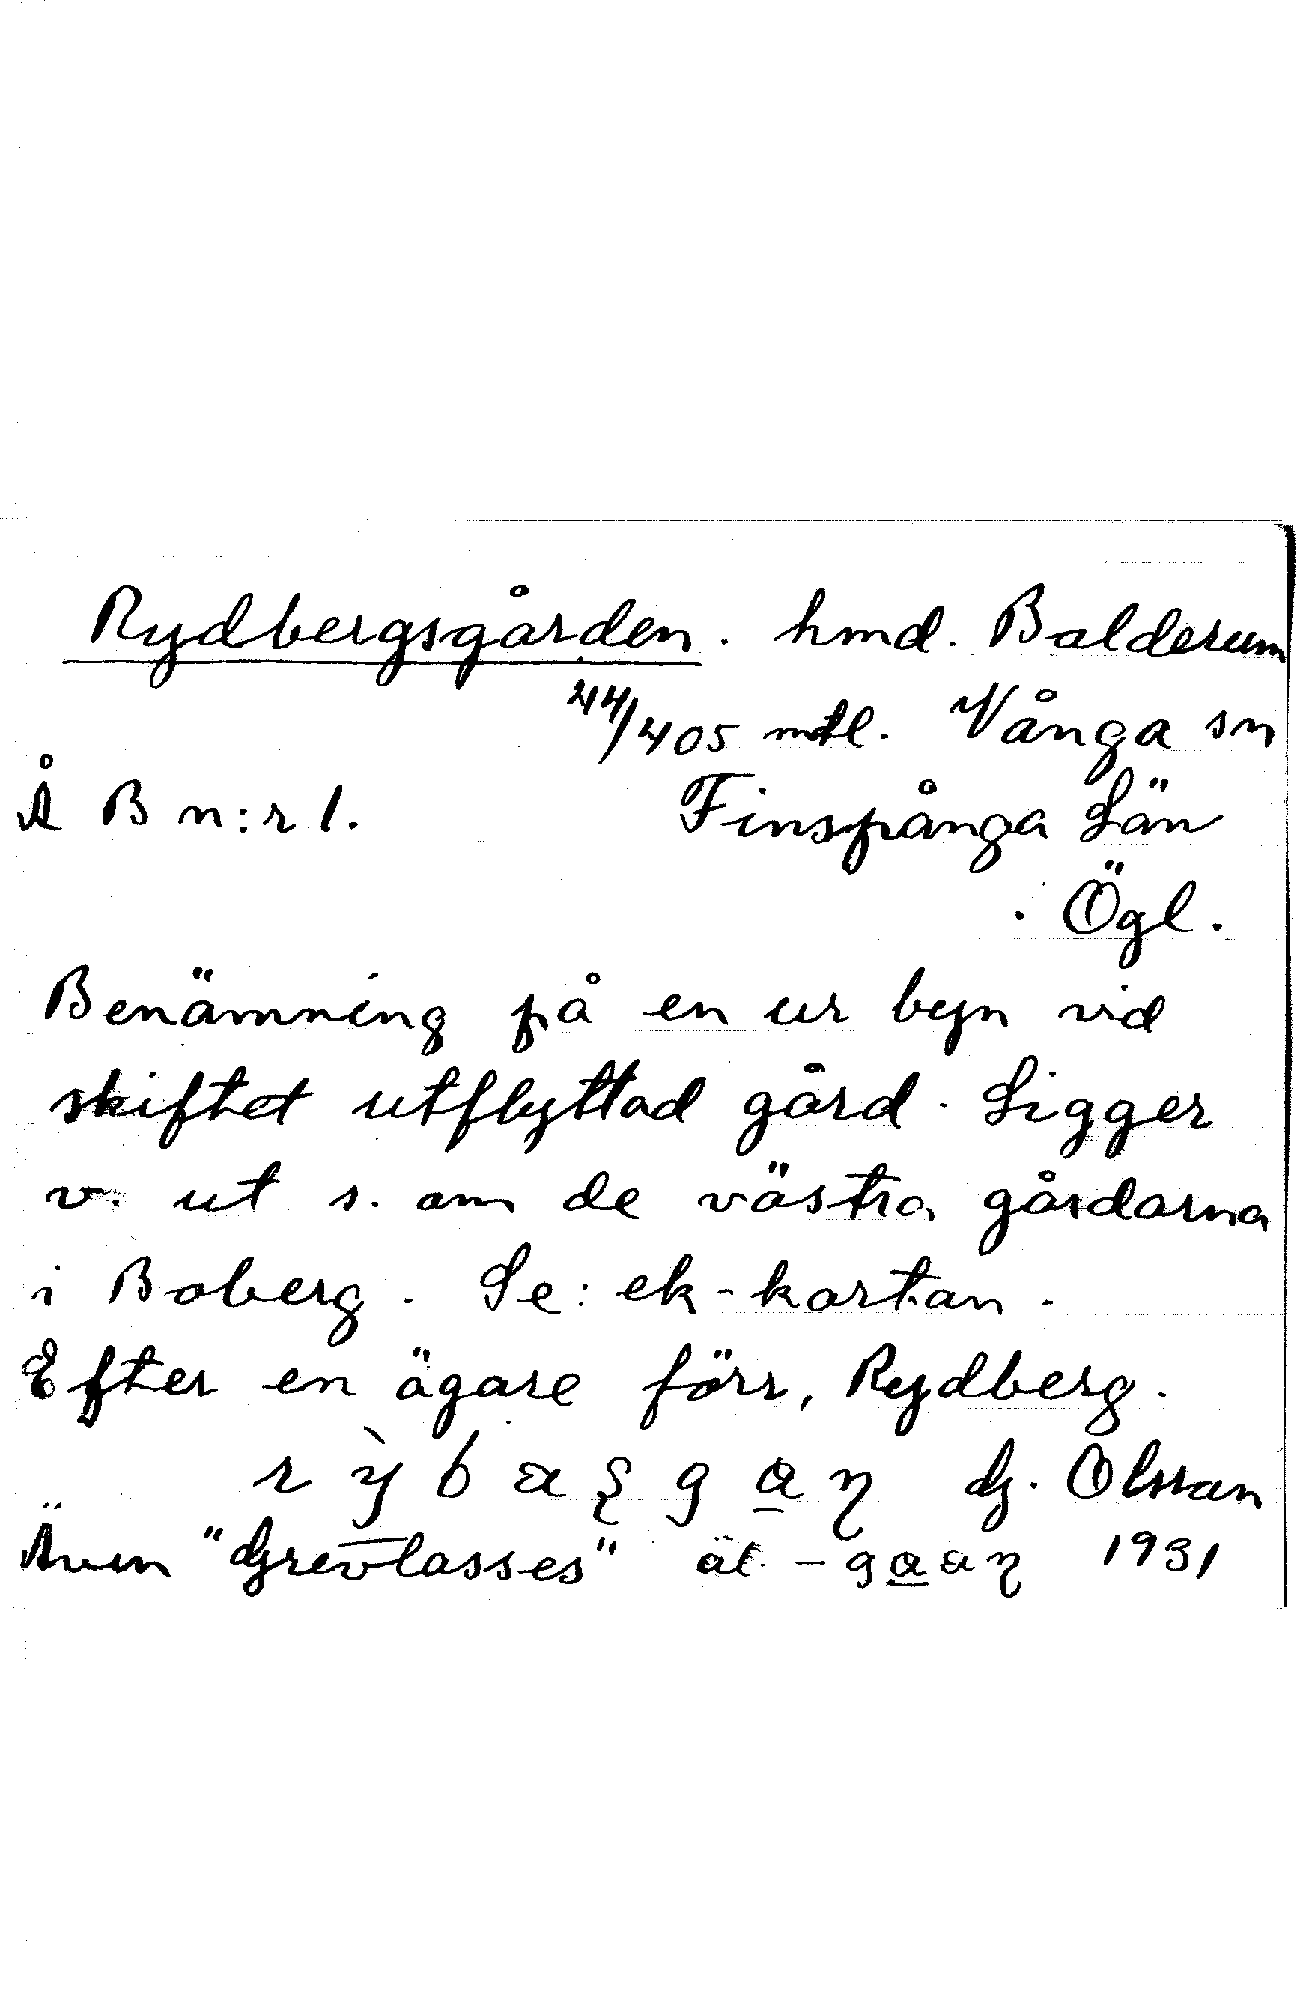 Rydbergsgården. hmd. Balderum
44/405 mtl. Vånga sn
Å B n:r 1. Finspånga Län
Ögl.
Benämning på en ur byn vid
skiftet utflyttad gård. Ligger
v. ut s. om de västra gårdarna
i Boberg. Se: ek-kartan.
Efter en ägare förr, Rydberg.
G. Olsson
Även "Grevlasses" 1931